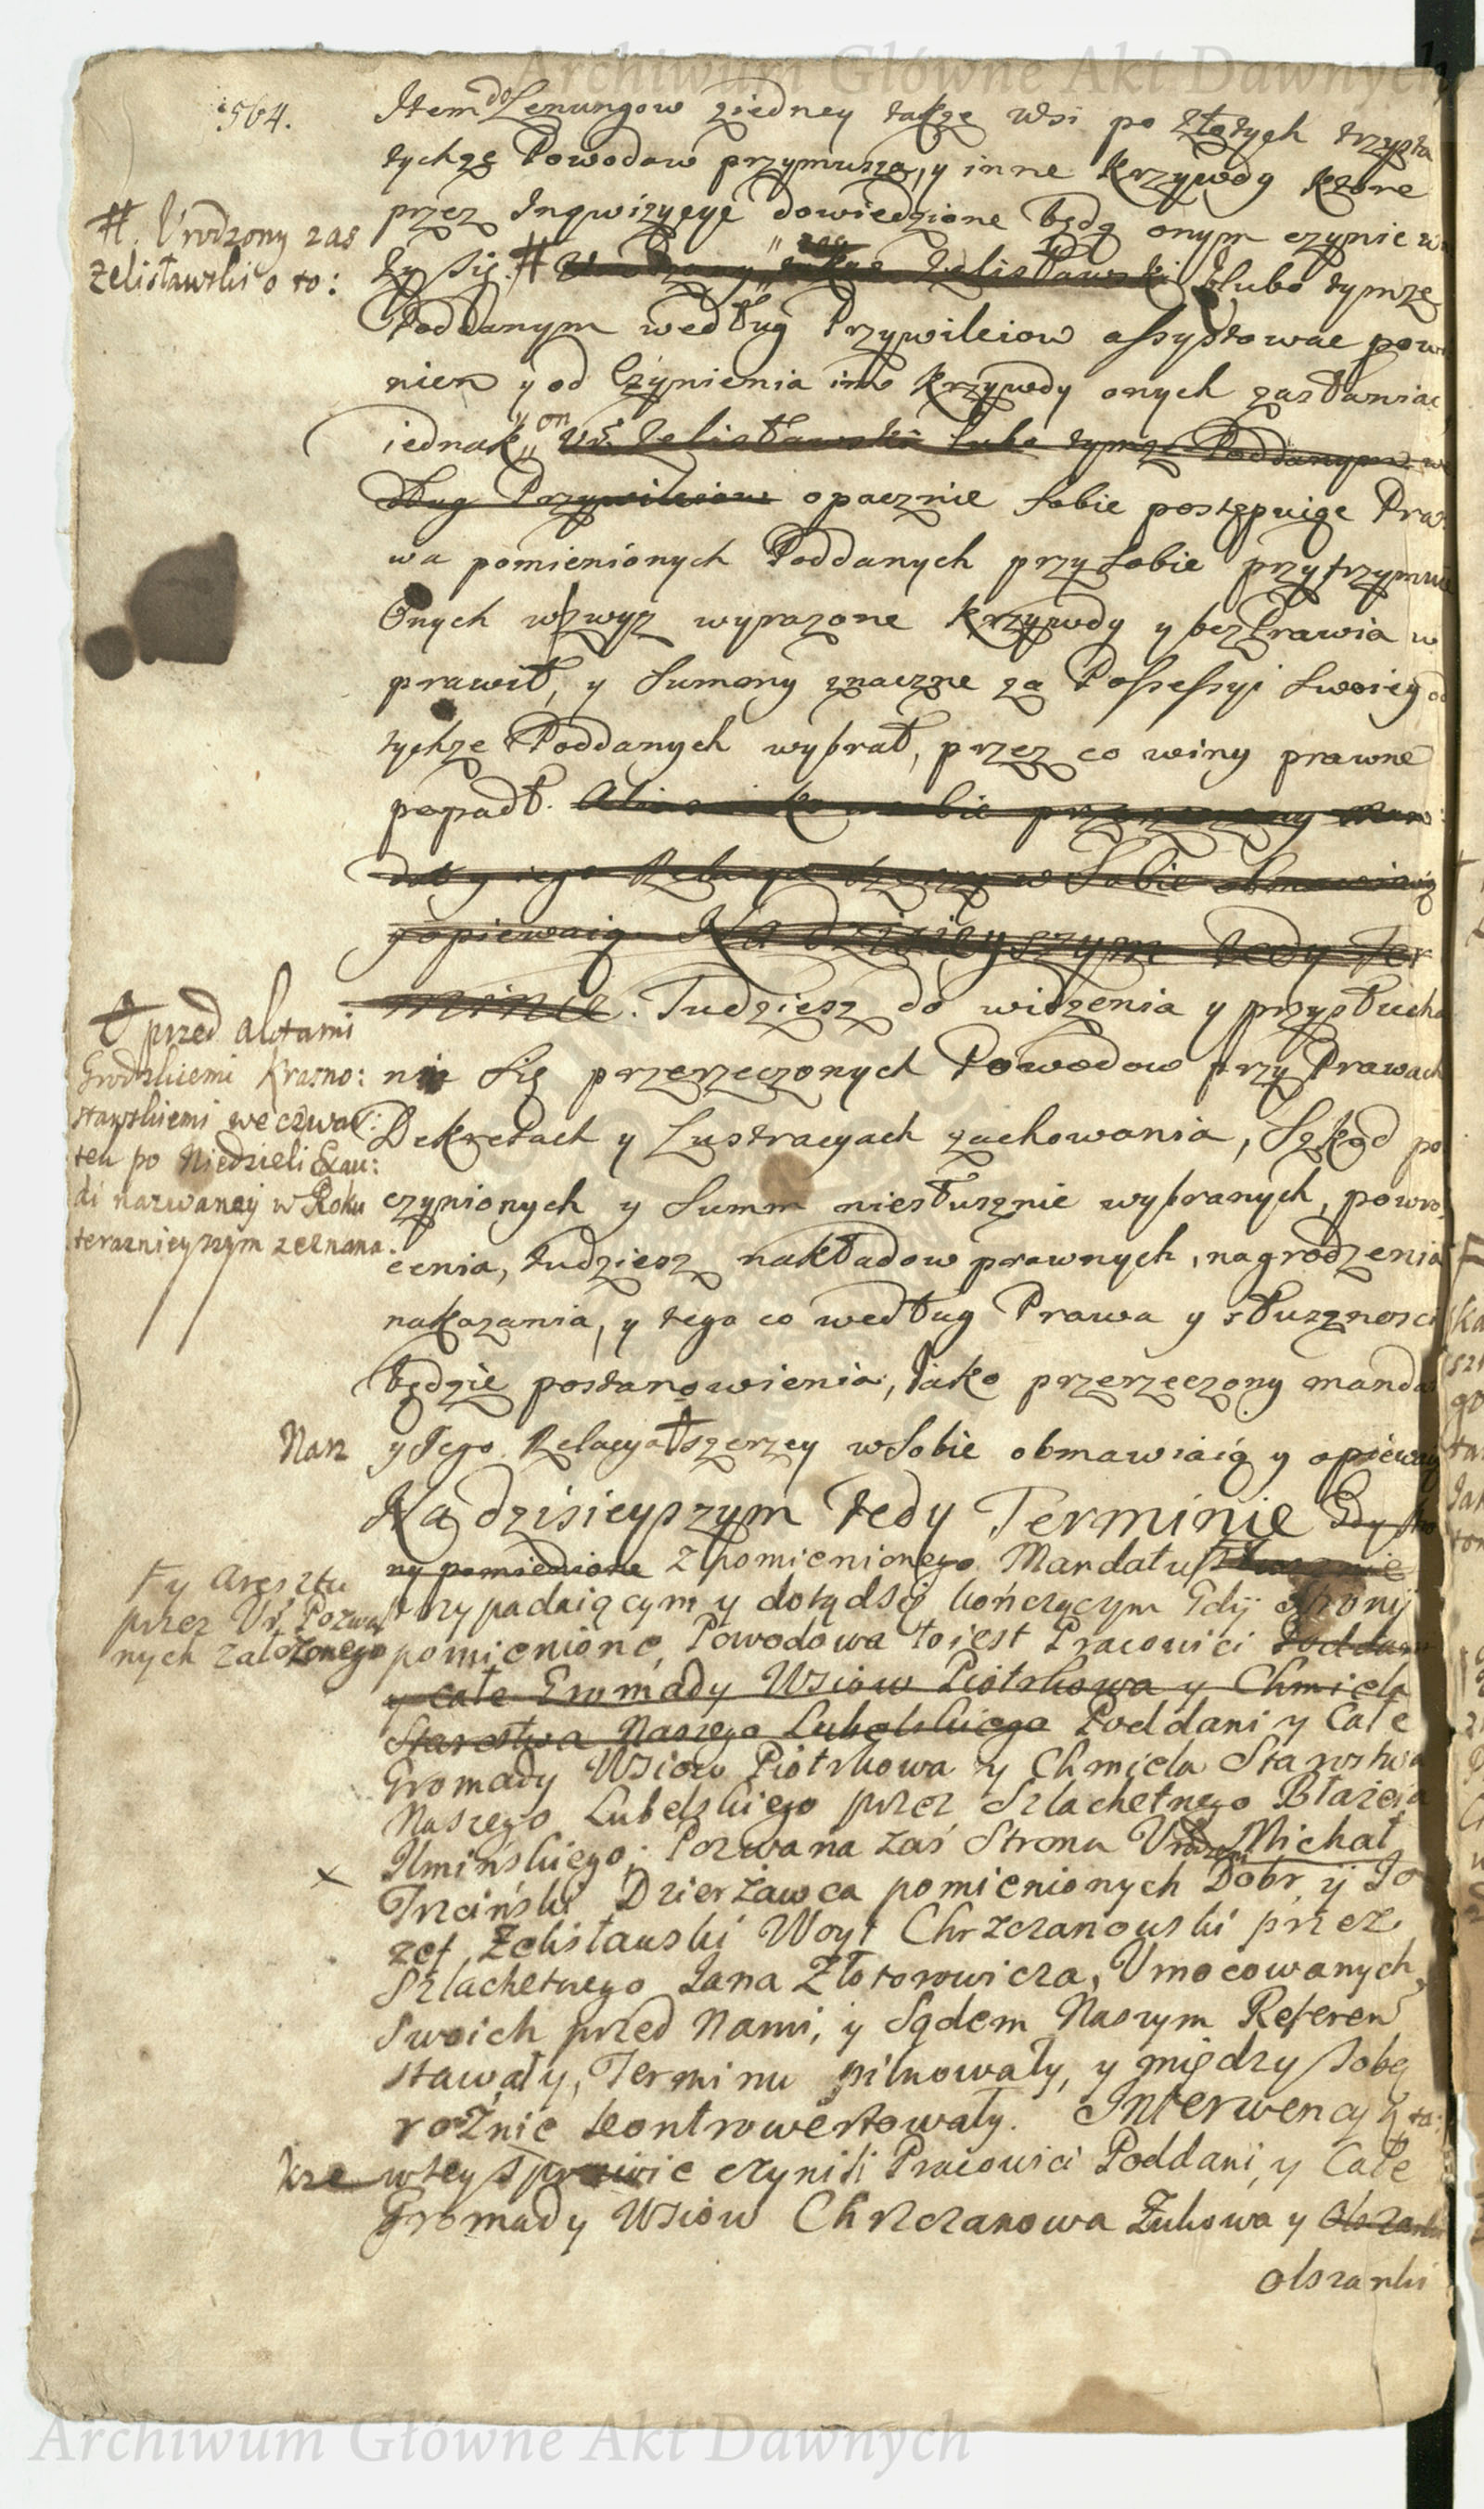 Archiwum Główne Akt Dawnych
564.
Item do Lenungow ziedney takze Wsi po złotych trzysta
tychze Powodow przymusza, y inne krzywdy ktore
przez Inqwizycye dowiedzione będą onym czynic
#. Urodzony zas
Zelisławski o to:
ży się. # Urodzony zas Zelisławski lubo tymze
Poddanym według Przywileiow assystowac pow
nien y od Czynienia im krzywdy onych zasłaniac
iednak y on Ur. Zelisławski lubo tymze Poddanym we
dług Przywileiow opacznie sobie postępuiąc Pra
wa pomienionych Poddanych przy sobie przytrzymuie
Onych wzwyz wyrazone krzywdy y bezprawia w
prawił, y Summy znaczne za Possessyi swoiey od
tychze Poddanych wybrał, przez co winy prawne
popadł. przerzeczony Man
dat y iego Relacya szerzey w Sobie obmawiaią
y opiewaią Na dzisieyszym tedy Ter
minie. Tudziesz do widzenia y przysłucha
nia się przerzeczonych Powodow przy Prawach
Dekretach y Lustracyach zachowania, Szkod po
czynionych y Summ niesłusznie wybranych, powro
cenia, tudziesz nakładow prawnych, nagrodzenia
nakazania, y tego co według Prawa y słusznosci
będzie postanowienia, iako przerzeczony manda
przed aktami
Grodzkiemi Krasno:
stawskiemi we czwar:
tek po Niedzieli Exau:
di nazwaney w Roku
teraznieyszym zeznana.
Nasz y Jego Relacya szerzey w Sobie obmawiaią y opiewaią
Na dzisieyszym tedy Terminie Gdy stro
ny pomienione z pomienionego Mandatu
y Aresztu
przez Ur. Pozwa
nych założonego
przypadaiącym y dotądsię kończącym Gdy Strony
pomienione, Powodowa to iest Pracowici Poddani
y całe Gromady Wsiow Piotrkowa y Chmiela
Starostwa Naszego Lubelskiego Poddani y Całe
Gromady Wsiow Piotrkowa y Chmiela Starostwa
Naszego Lubelskiego przez Szlachetnego Błażeja
Ilmińskiego; Pozwana zaś Strona Urodzeni Michał
Trzciński Dzierżawca pomienionych Dobr y Jo
zef Zelisławski Woyt Chrzczanowski przez
Szlachetnego Jana Złotorowicza, Umocowanych
Swoich przed Nami, y Sądem Naszym Referen
stawały, Terminu pilnowały, y między sobą
rożnie kontrowertowały. Interwencyą ta:
kze w tey Sprawie czynili Pracowici Poddani, y Całe
Gromady Wsiow Chrzczanowa Żukowa y Olszanki
Olszanki
Archiwum Główne Akt Dawnych